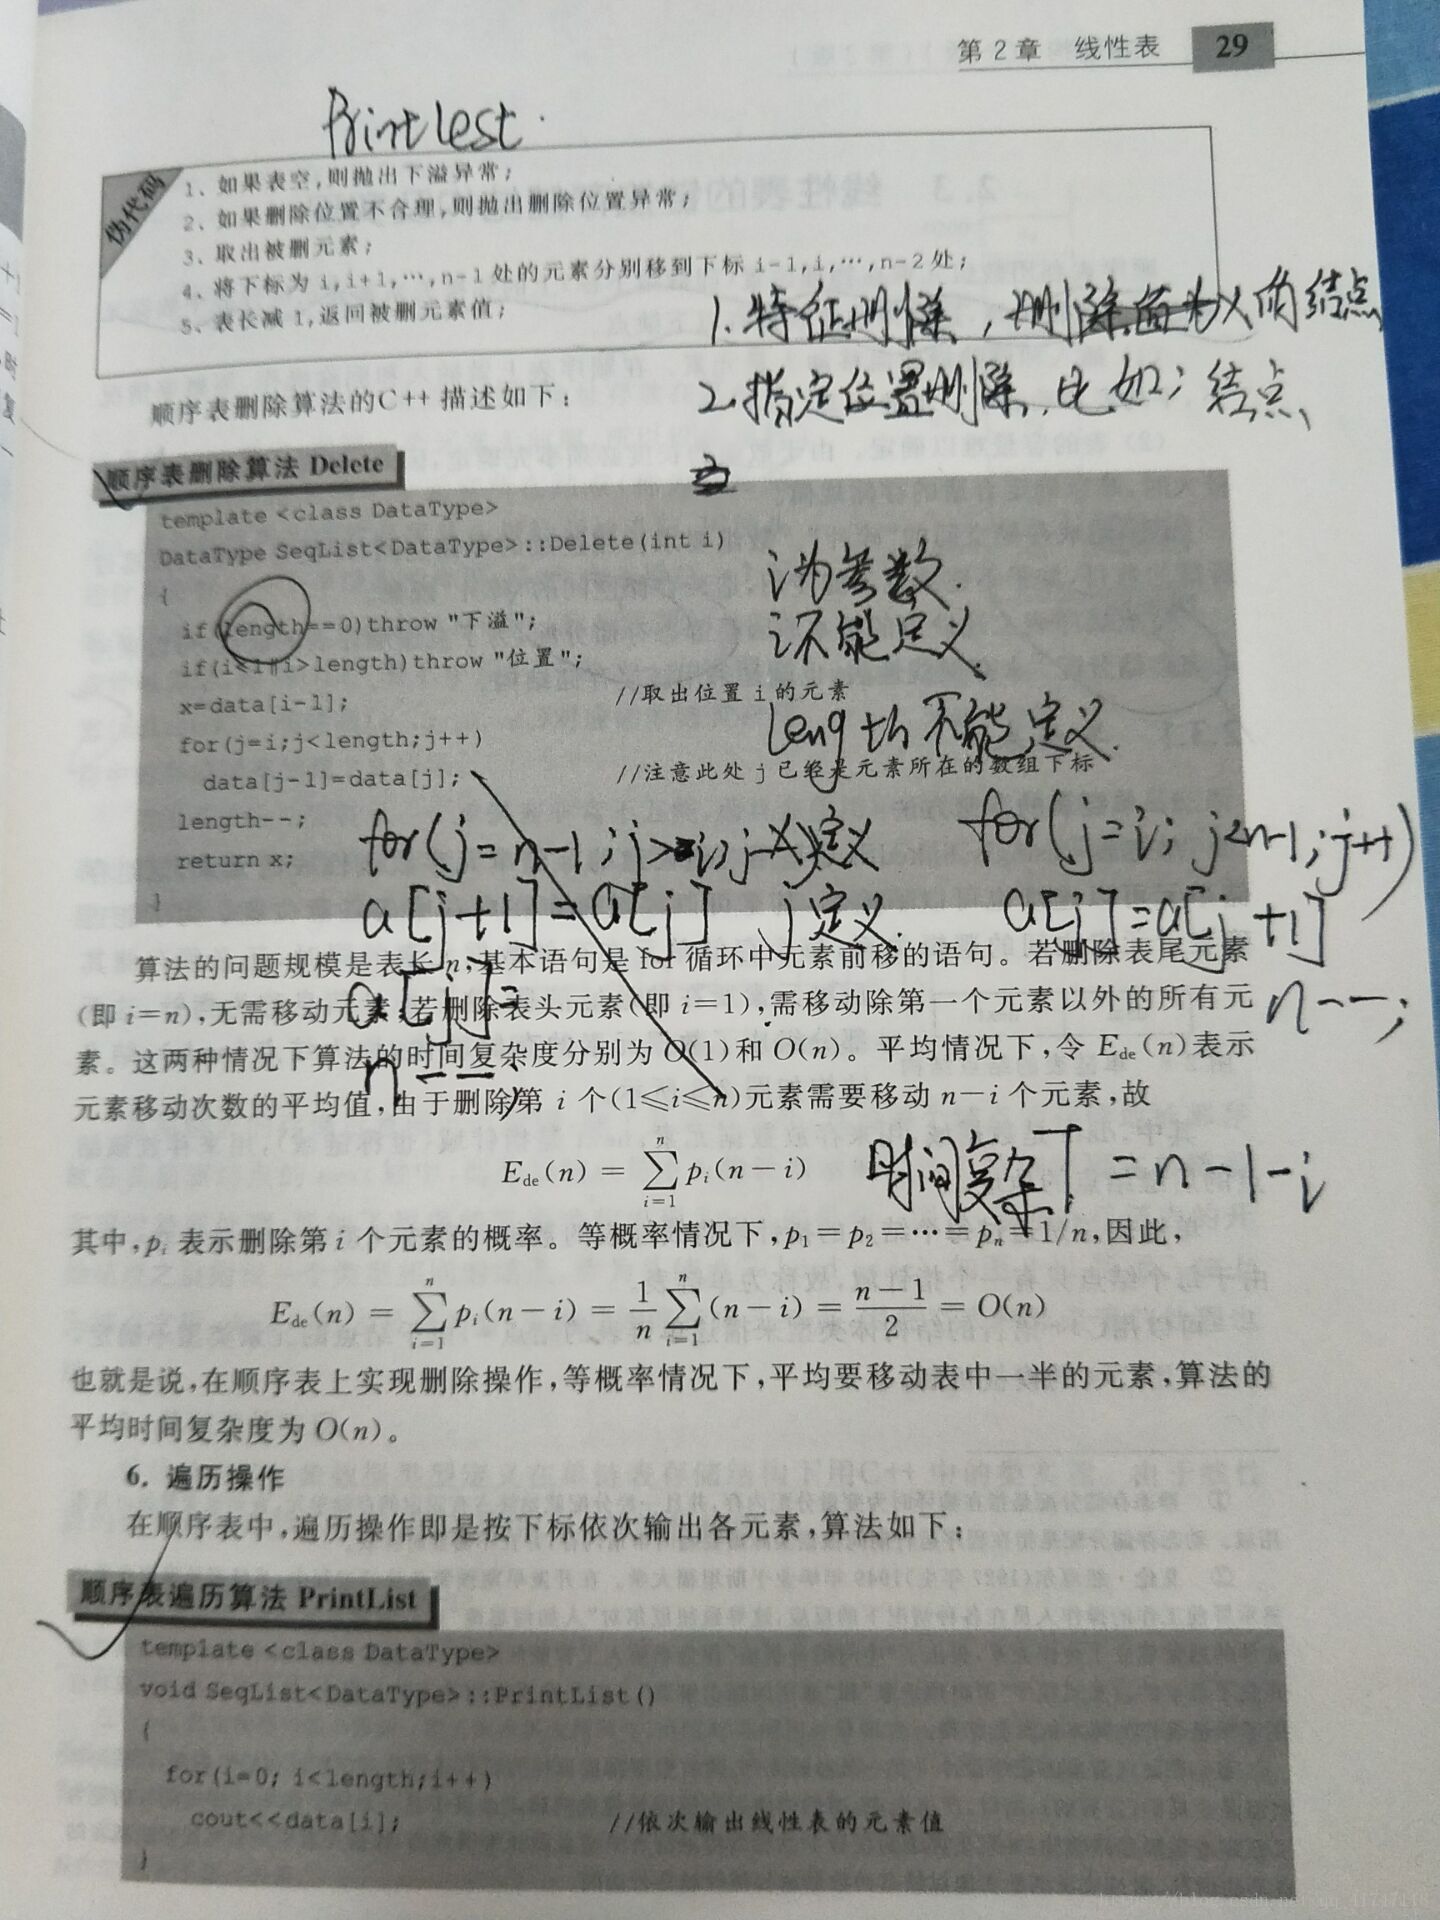 第2章 线性表 29
Printlest.
伪代码
1、如果表空,则抛出下溢异常;
2、如果删除位置不合理,则抛出删除位置异常;
3、取出被删元素;
4、将下标为 i,i+1,…,n-1 处的元素分别移到下标 i-1,i,…,n-2 处;
5、表长减 1,返回被删元素值;
1. 特征删除,删除值为x的结点
顺序表删除算法的C++ 描述如下:
2. 指定位置删除,比如i结点
顺序表删除算法 Delete
template <class DataType>
DataType SeqList<DataType>::Delete(int i)
{
i为参数.
if(length==0)throw "下溢";
i不能定义.
if(i<1||i>length)throw "位置";
x=data[i-1]; //取出位置 i 的元素
length不能定义.
for(j=i;j<length;j++)
data[j-1]=data[j]; //注意此处 j 已经是元素所在的数组下标
length--;
for(j=n-1;j>i;j--)定义
for(j=i; j<n-1;j++)
return x;
a[j+1]=a[j] j定义.
a[j]=a[j+1]
}
算法的问题规模是表长 n,基本语句是 for 循环中元素前移的语句。若删除表尾元素
(即 i=n),无需移动元素;若删除表头元素(即 i=1),需移动除第一个元素以外的所有元
a[j]=
n--;
素。这两种情况下算法的时间复杂度分别为 O(1)和 O(n)。平均情况下,令 Ede(n)表示
n--;
元素移动次数的平均值,由于删除第 i 个(1≤i≤n)元素需要移动 n-i 个元素,故
Ede(n) = ∑(i=1→n) pi(n-i)
时间复杂T = n-1-i
其中,pi 表示删除第 i 个元素的概率。等概率情况下,p1=p2=…=pn=1/n,因此,
Ede(n) = ∑(i=1→n) pi(n-i) = 1/n ∑(i=1→n) (n-i) = (n-1)/2 = O(n)
也就是说,在顺序表上实现删除操作,等概率情况下,平均要移动表中一半的元素,算法的
平均时间复杂度为 O(n)。
6. 遍历操作
在顺序表中,遍历操作即是按下标依次输出各元素,算法如下:
顺序表遍历算法 PrintList
template <class DataType>
void SeqList<DataType>::PrintList()
{
for(i=0; i<length;i++)
cout<<data[i]; //依次输出线性表的元素值
}